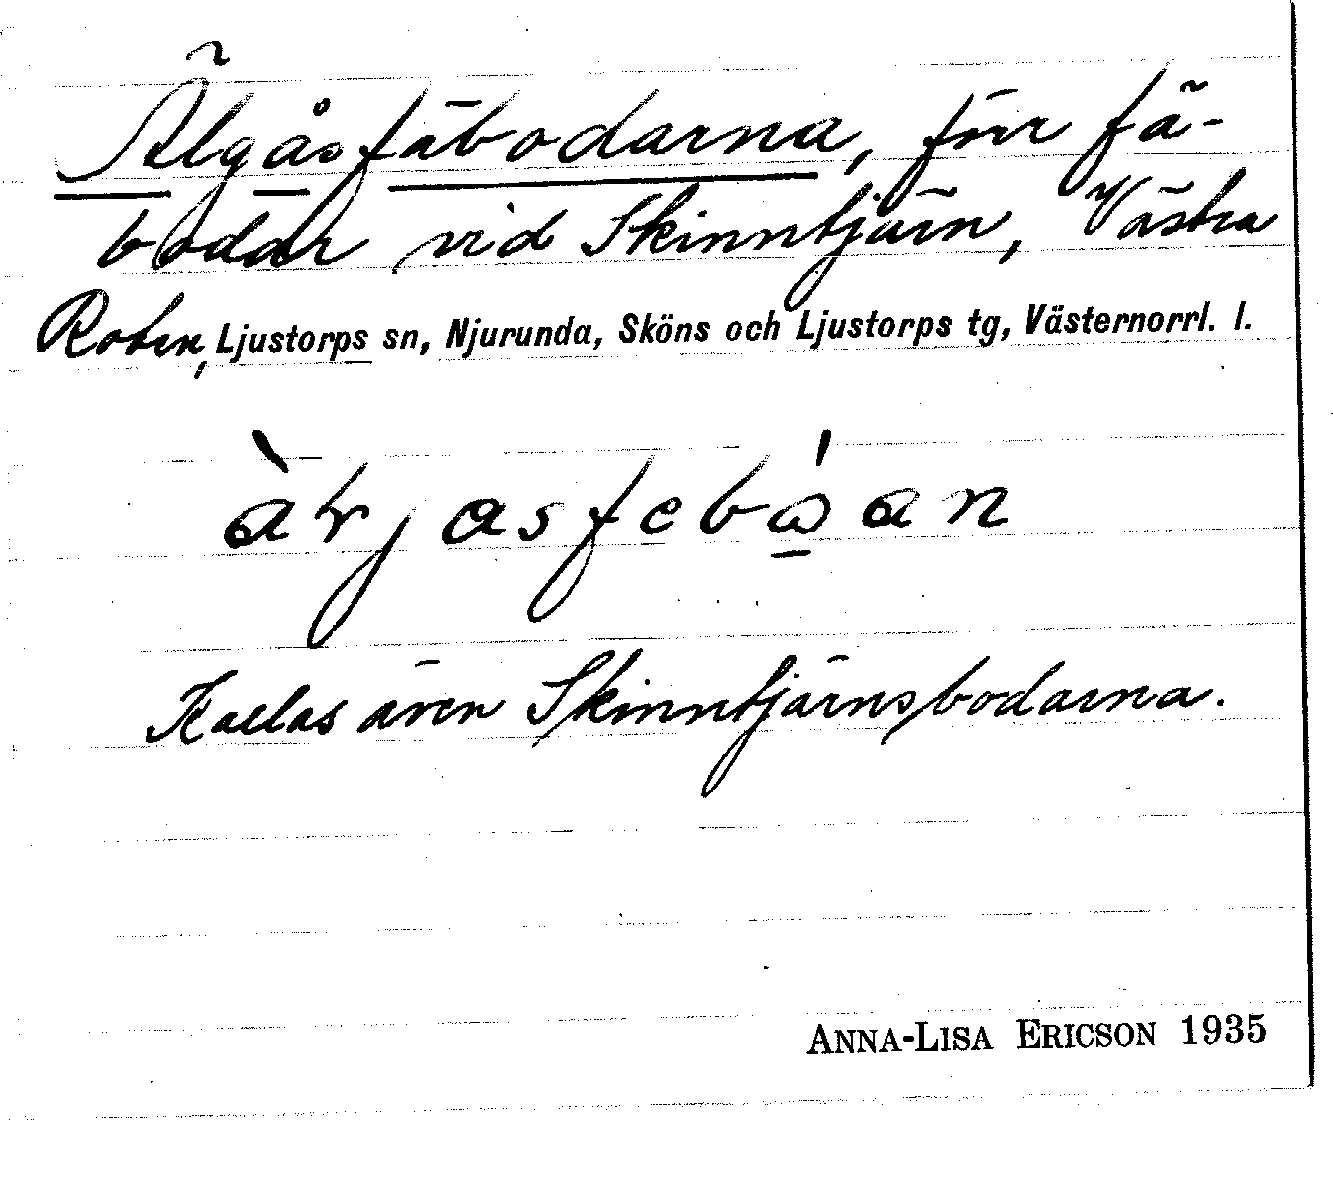 Älgåsfäbodarna, förr fä-
bodar vid Skinntjärn, Västra
Roten, Ljustorps sn, Njurunda, Sköns och Ljustorps tg, Västernorrl. l.
Kallas även Skinntjärnsbodarna.
ANNA-LISA ERICSON 1935